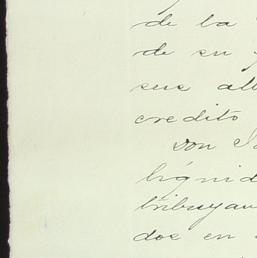 de la
de su
sus al
credito
son
liquid
tribuyan
dos en